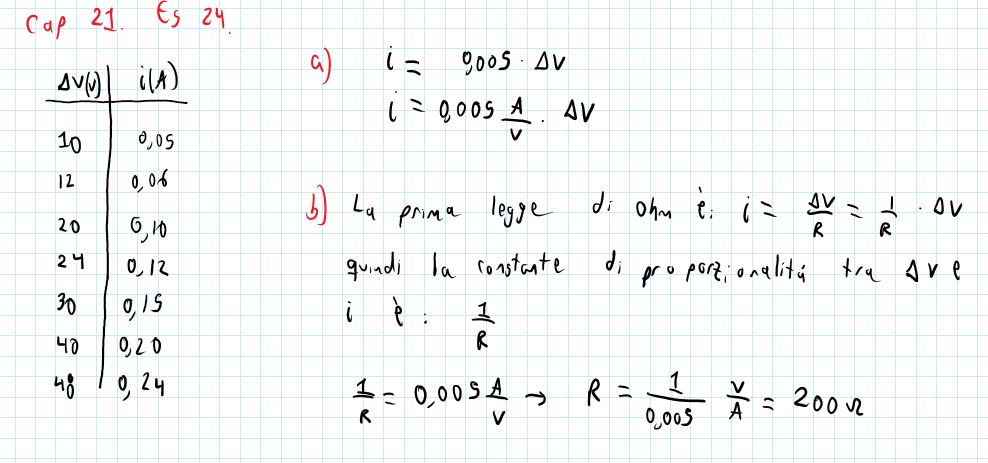 Cap 21. Es 24.
ΔV(V) i(A)
10 0,05
12 0,06
20 0,10
24 0,12
30 0,15
40 0,20
48 0,24
a) i = 0,005 · ΔV
i = 0,005 A/V · ΔV
b) La prima legge di Ohm è: i = ΔV/R = 1/R · ΔV
quindi la constante di proporzionalità tra ΔV e
i è : 1/R
1/R = 0,005 A/V → R = 1/0,005 V/A = 200 Ω